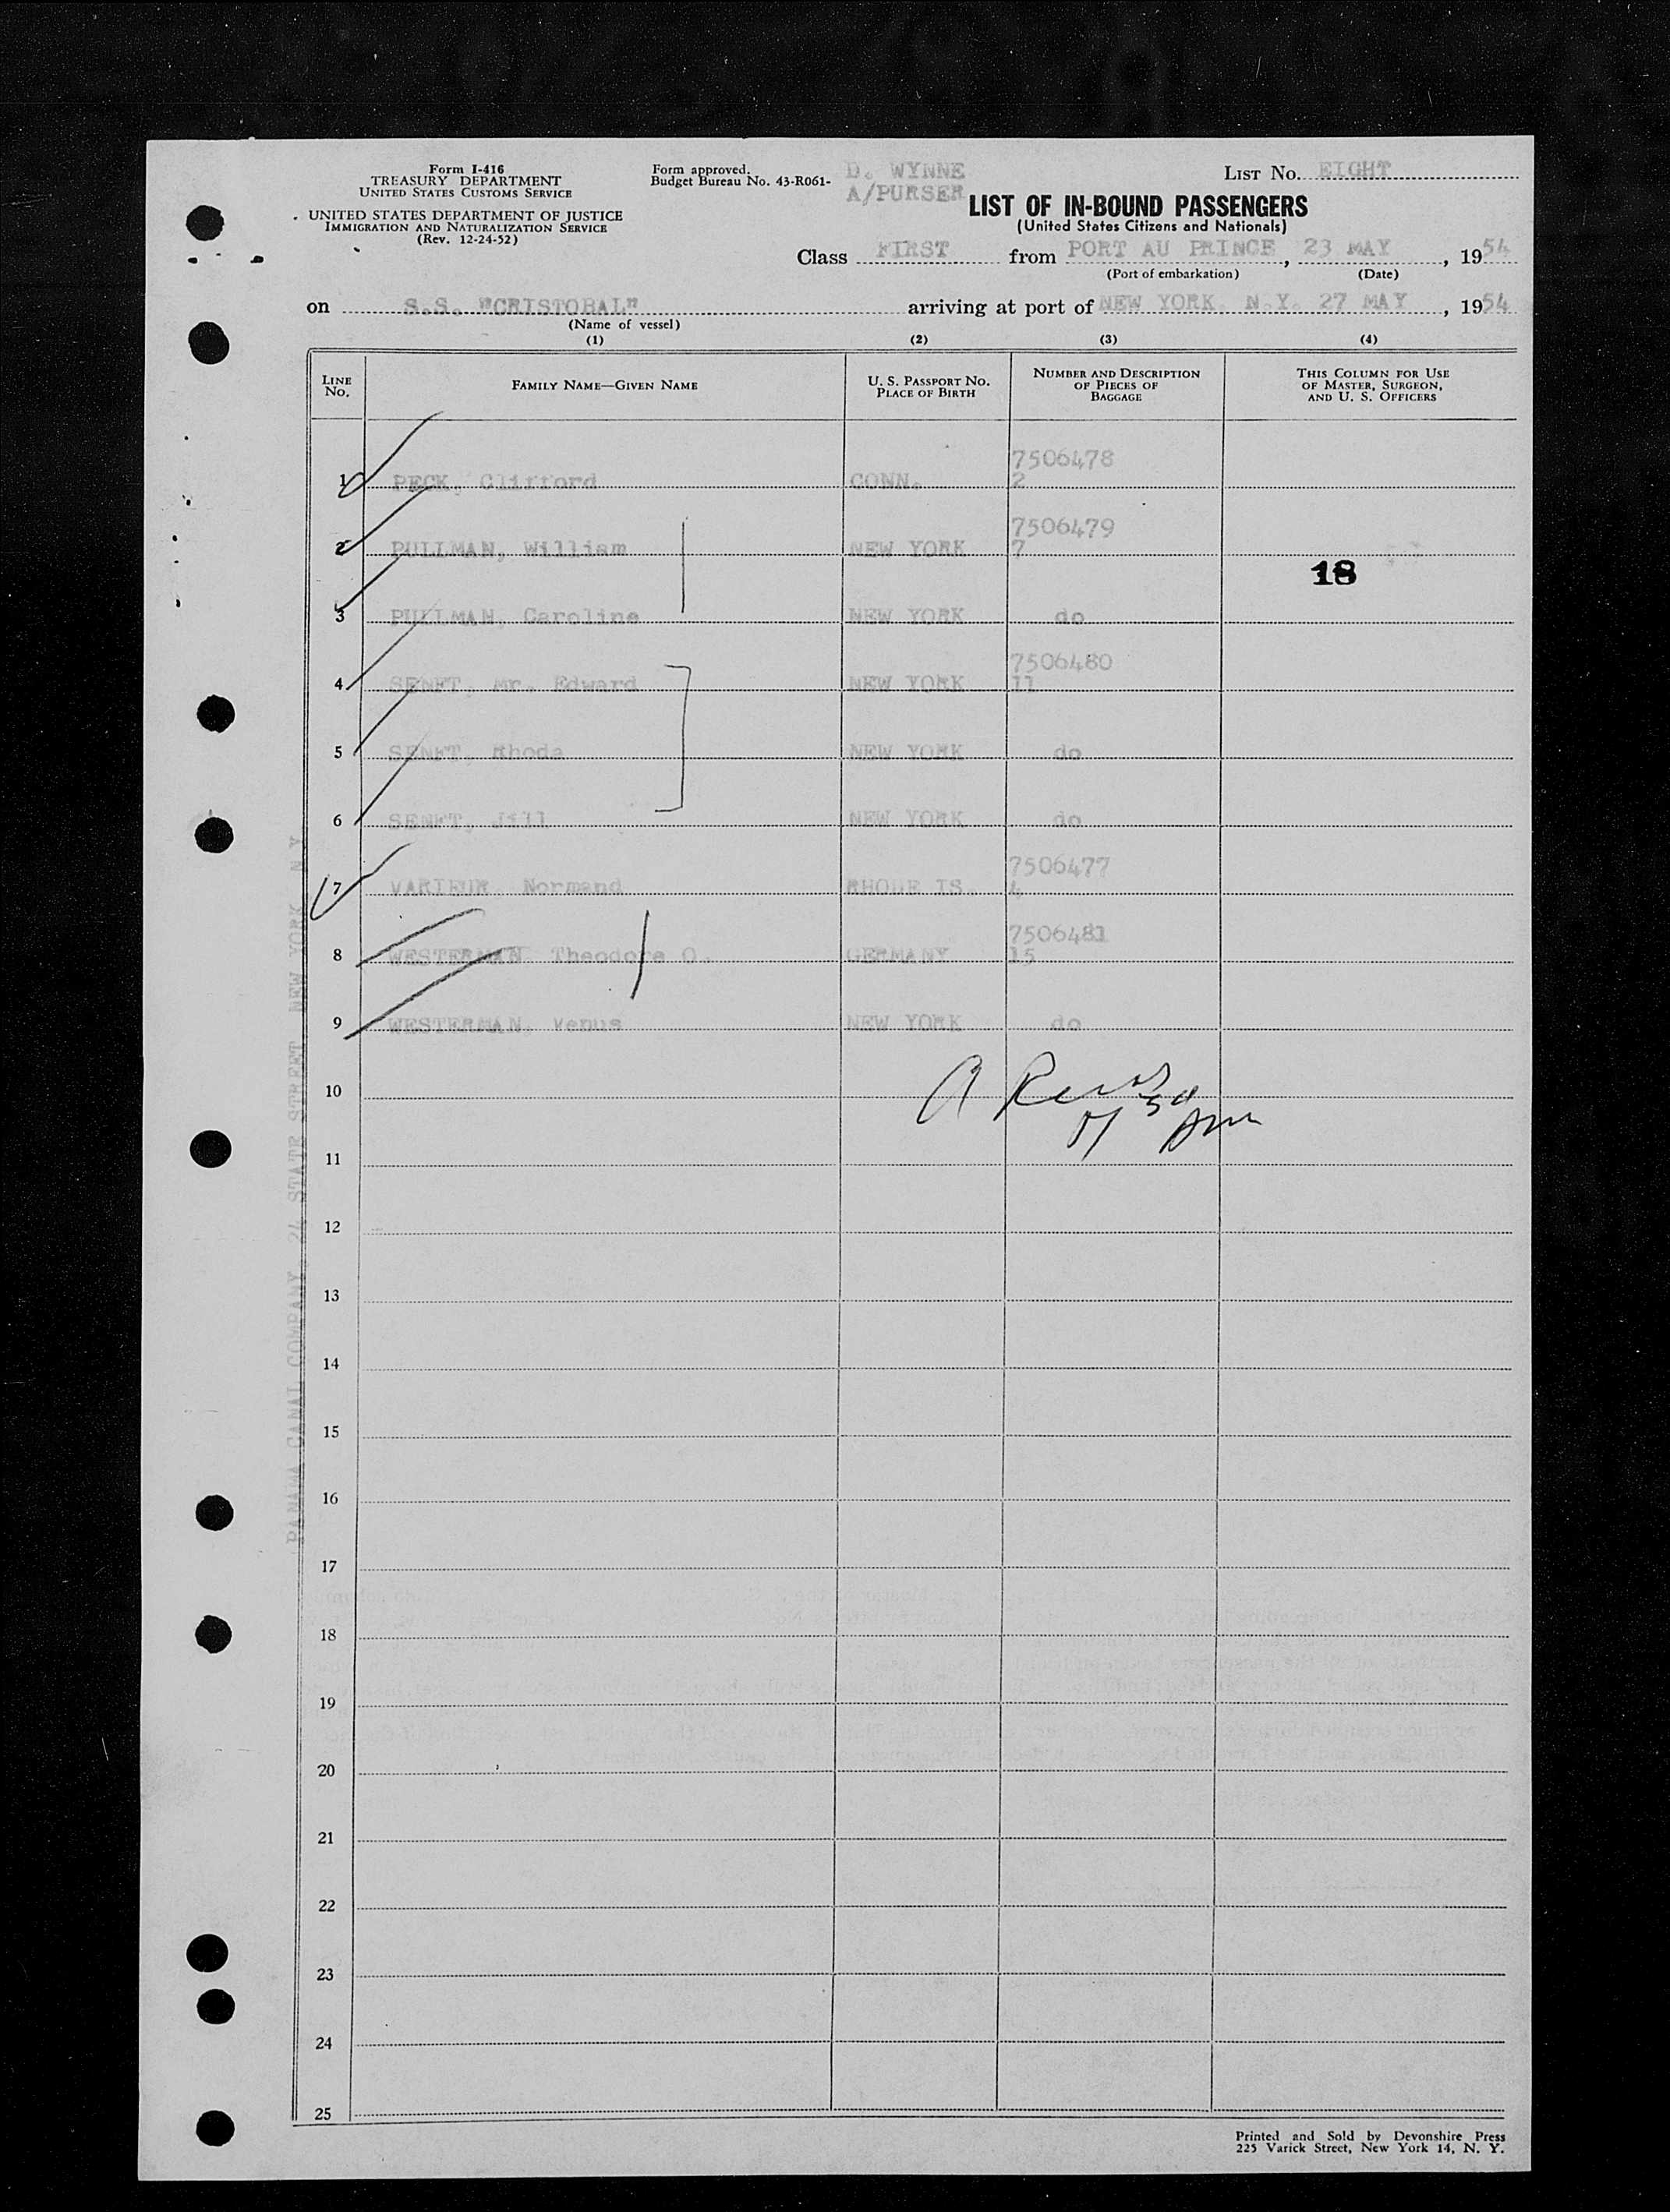 Form I-416
TREASURY DEPARTMENT
UNITED STATES CUSTOMS SERVICE
UNITED STATES DEPARTMENT OF JUSTICE
IMMIGRATION AND NATURALIZATION SERVICE
(Rev. 12-24-52)
Form approved.
Budget Bureau No. 43-R061-
D. WYNNE
A/PURSER
LIST No. EIGHT
LIST OF IN-BOUND PASSENGERS
(United States Citizens and Nationals)
Class FIRST from PORT AU PRINCE, 23 MAY, 1954
(Port of embarkation) (Date)
on S.S. "CRISTOBAL" arriving at port of NEW YORK, N.Y. 27 MAY, 1954
(Name of vessel)
(1) (2) (3) (4)
LINE No. FAMILY NAME—GIVEN NAME U. S. PASSPORT No. PLACE OF BIRTH NUMBER AND DESCRIPTION OF PIECES OF BAGGAGE THIS COLUMN FOR USE OF MASTER, SURGEON, AND U. S. OFFICERS
7506478
1 PECK, Clifford CONN. 2
7506479
2 PULLMAN, William NEW YORK 7
18
3 PULLMAN, Caroline NEW YORK do
7506480
4 SENFT, Mr. Edward NEW YORK 11
5 SENFT, Rhoda NEW YORK do
6 SENFT, Jill NEW YORK do
7506477
7 VARIEUR, Normand RHODE IS. 4
7506481
8 WESTERMAN, Theodore O. GERMANY 15
9 WESTERMAN, Venus NEW YORK do
10
11
12
13
14
15
16
17
18
19
20
21
22
23
24
25
PANAMA CANAL COMPANY, 24 STATE STREET, NEW YORK, N.Y.
Printed and Sold by Devonshire Press
225 Varick Street, New York 14, N. Y.